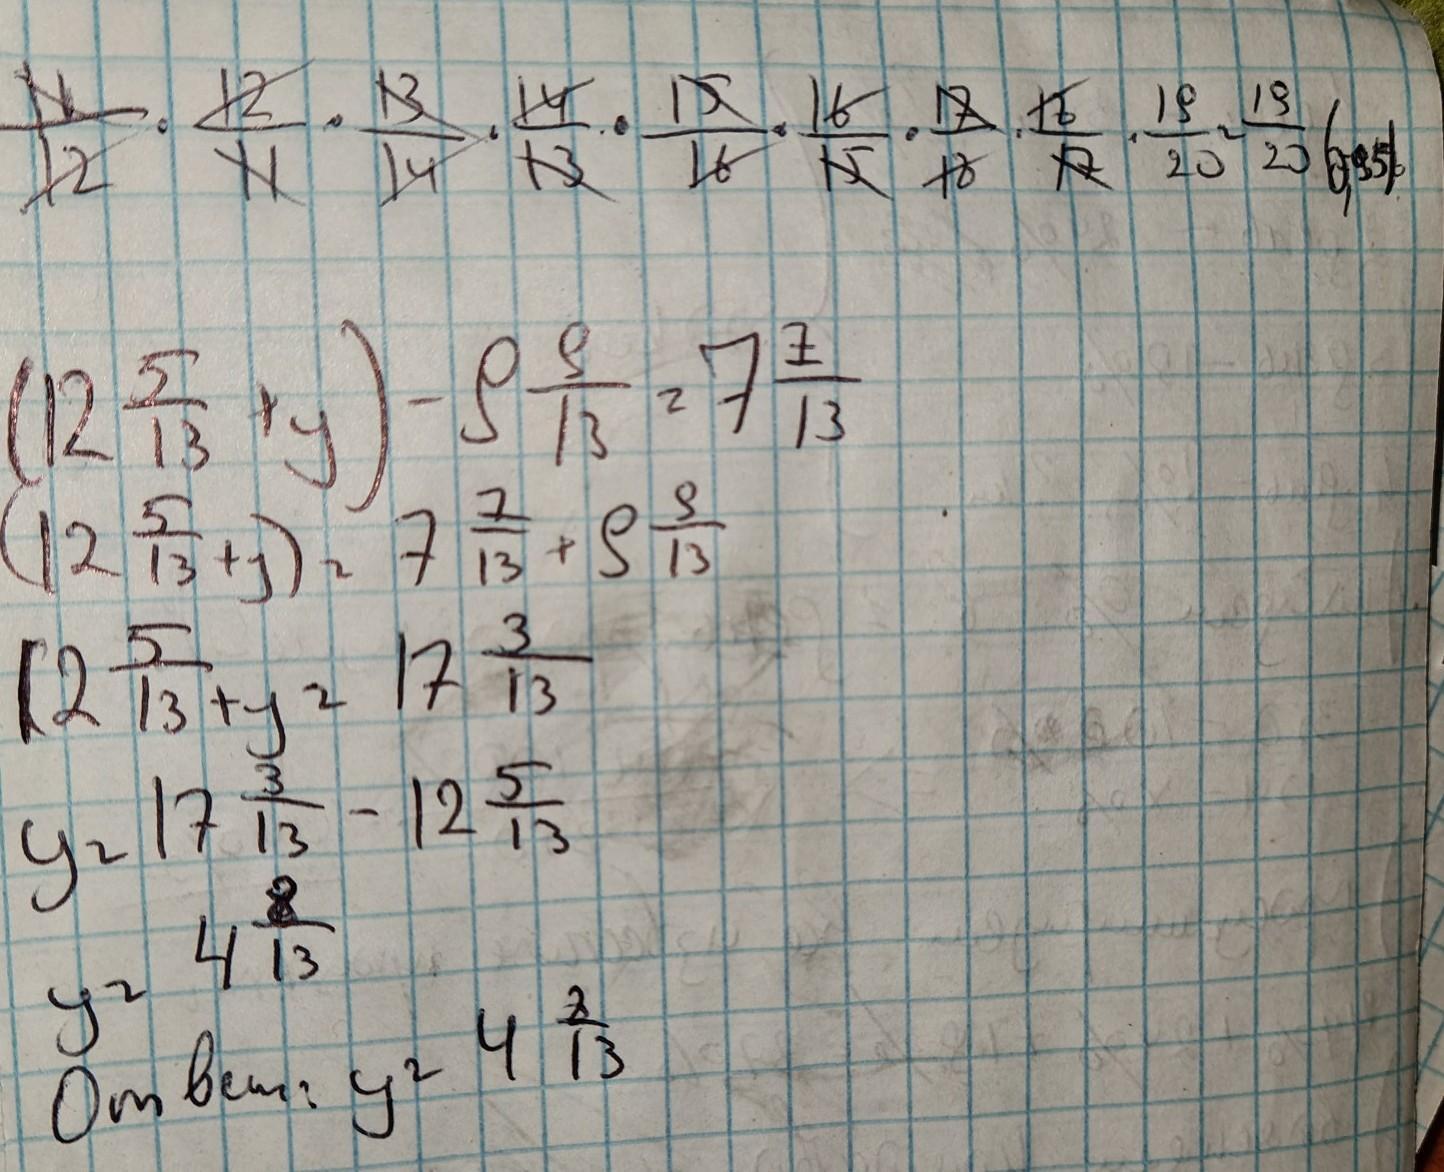 11/12 · 12/11 · 13/14 · 14/13 · 15/16 · 16/15 · 17/18 · 18/17 · 19/20 = 19/20 (0,95)
(12 5/13 + y) - 9 9/13 = 7 7/13
(12 5/13 + y) = 7 7/13 + 9 9/13
12 5/13 + y = 17 3/13
y = 17 3/13 - 12 5/13
y = 4 8/13
Ответ: y = 4 2/13